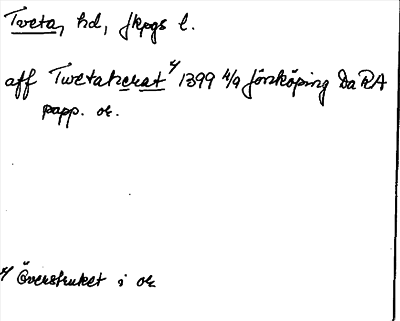 Tveta, hd, Jkpgs l.
aff Twetaherat 1) 1399 4/9 Jönköping Da RA
papp. or.
1) Överstruket i or